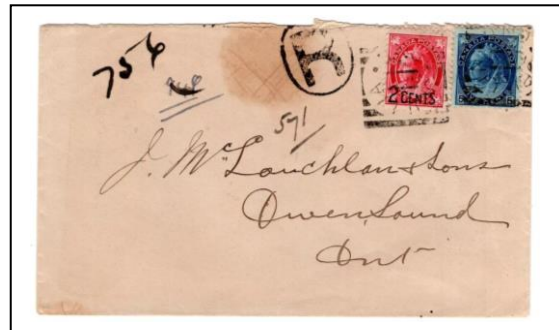 756
R
2 CENTS
571
J. McLauchlan & Sons
Owen Sound
Ont